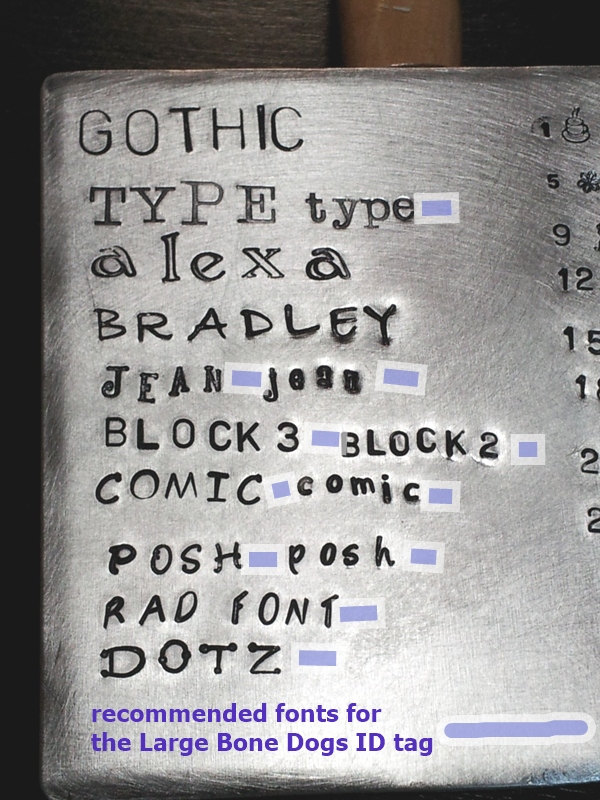 GOTHIC
TYPE type
alexa
BRADLEY
JEAN jean
BLOCK 3 BLOCK 2
COMIC comic
POSH posh
RAD FONT
DOTZ
recommended fonts for
the Large Bone Dogs ID tag
1
5
9
12